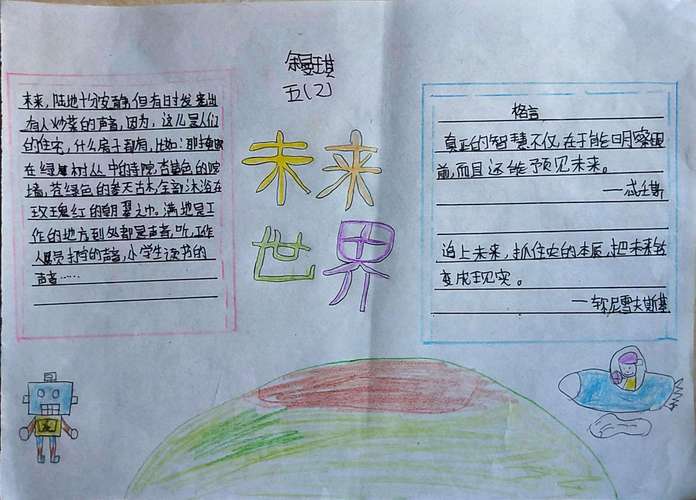 余曼琪
五(2)
未来世界
未来，陆地十分安静，但有时发出
有人炒菜的声音，因为，这儿是人们
的住宅，什么房子都有，比如：那
在绿树丛中的寺院，杏黄色的院
墙，苍绿色的参天古木，全都沐浴在
玫瑰红的朝霞之中。满地是工
作的地方到处都是声音，听，工作
人员打字的声音，小学生读书的
声音……
格言
真正的智慧不仅在于能明察眼
前，而且还能预见未来。
——忒壬斯
追上未来，抓住它的本质，把未来转
变成现实。
——车尔尼雪夫斯基